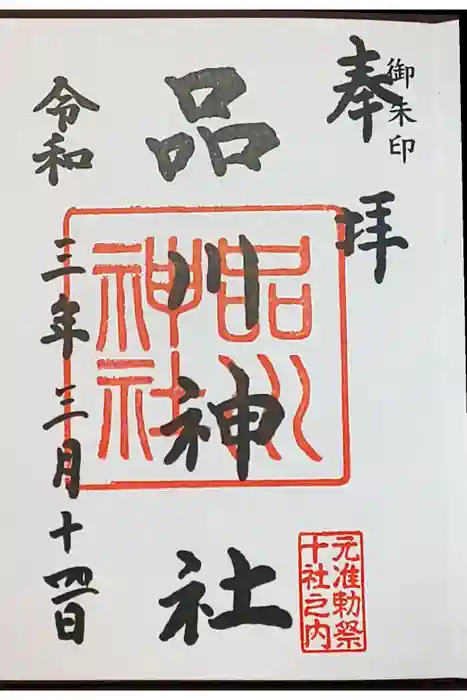 御朱印
奉拝
品川神社
品川
神社
元准勅祭
十社之内
令和三年三月十四日